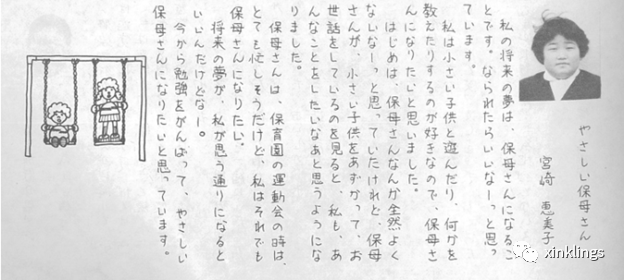 やさしい保母さん
宮崎 恵美子
私の将来の夢は、保母さんになるこ
とです。なられたらいいなーっと思っ
ています。
私は小さい子供と遊んだり、何かを
教えたりするのが好きなので、保母さ
んになりたいと思いました。
はじめは、保母さんなんか全然よく
ないなーっと思っていたけれど、保母
さんが、小さい子供をあずかって、お
世話をしているのを見ると、私も、あ
んなことをしたいなあと思うようにな
りました。
保母さんは、保育園の運動会の時は、
とても忙しそうだけど、私はそれでも
保母さんになりたい。
将来の夢が、私が思う通りになると
いいんだけどなー。
今から勉強をがんばって、やさしい
保母さんになりたいと思っています。
xinklings